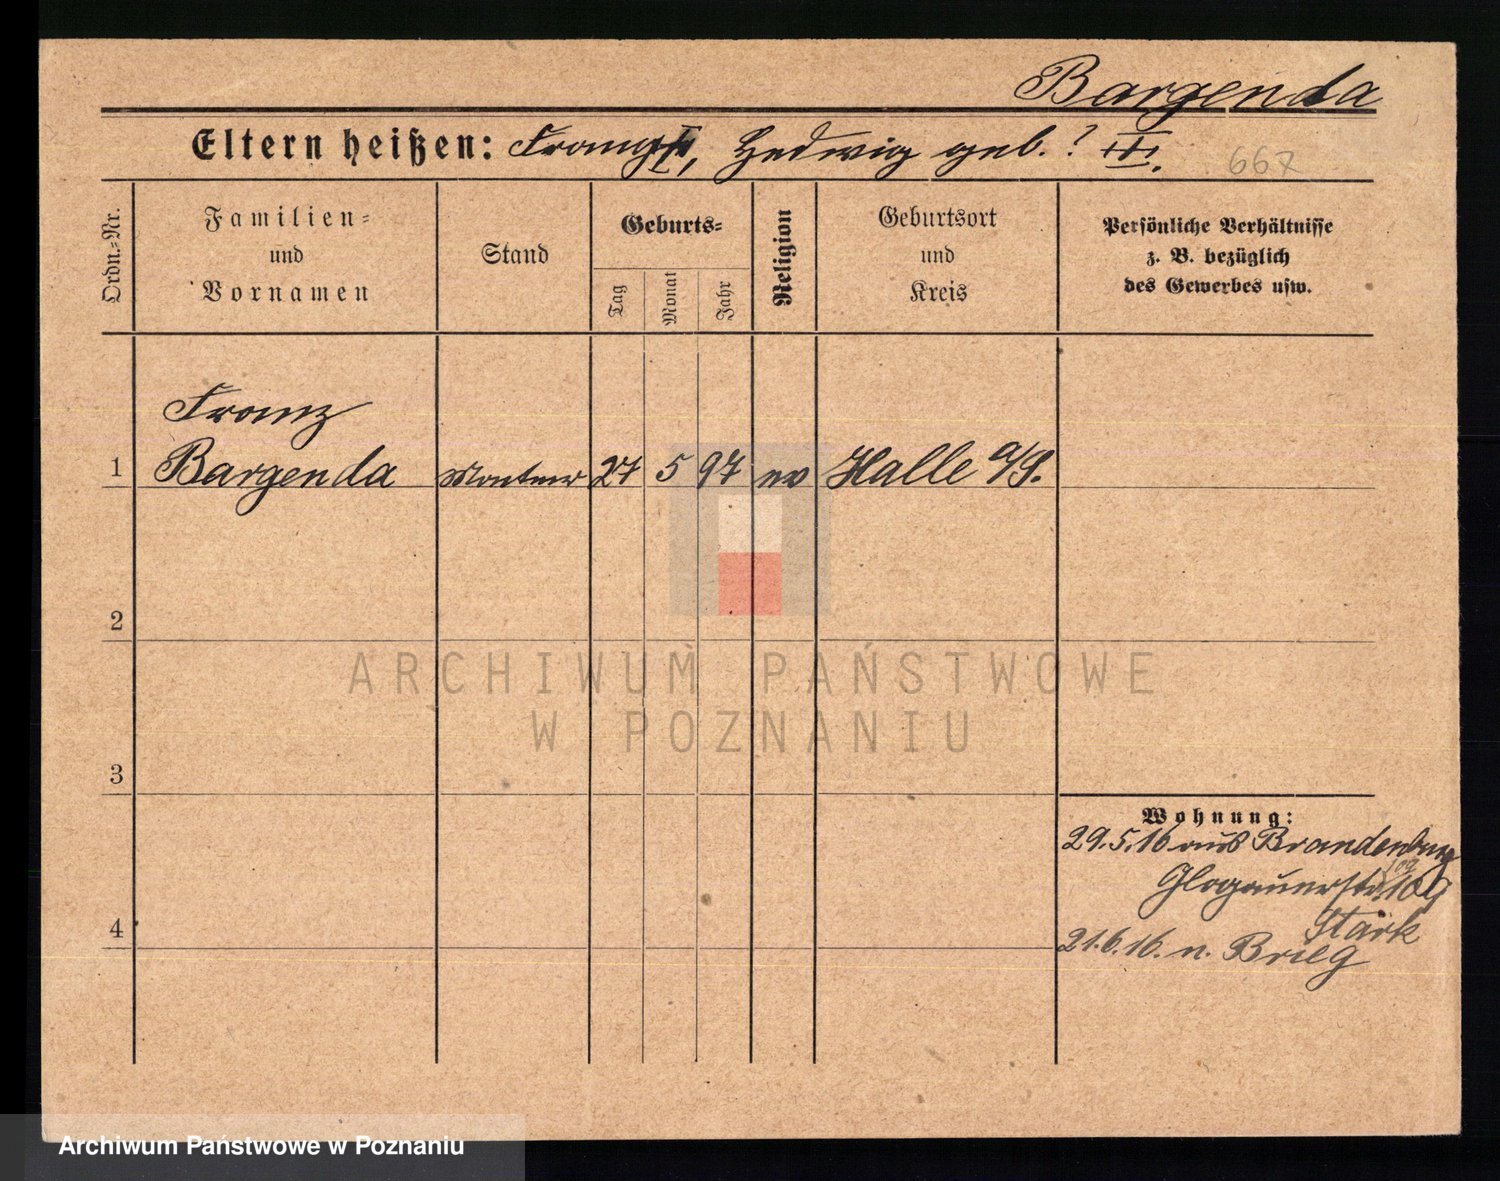 Bargenda
Eltern heißen: Franz, Hedwig geb. ? III.
667
Ordn.=Nr.
Familien=
und
Vornamen
Stand
Geburts=
Tag
Monat
Jahr
Religion
Geburtsort
und
Kreis
Persönliche Verhältnisse
z. B. bezüglich
des Gewerbes usw.
Franz
1 Bargenda Monteur 27 5 97 ev Halle a/S.
2
ARCHIWUM PAŃSTWOWE
W POZNANIU
3
Wohnung:
29.5.16 aus Brandenburg
Glogauerstr. 109
Stark
4
21.6.16. n. Brieg
Archiwum Państwowe w Poznaniu